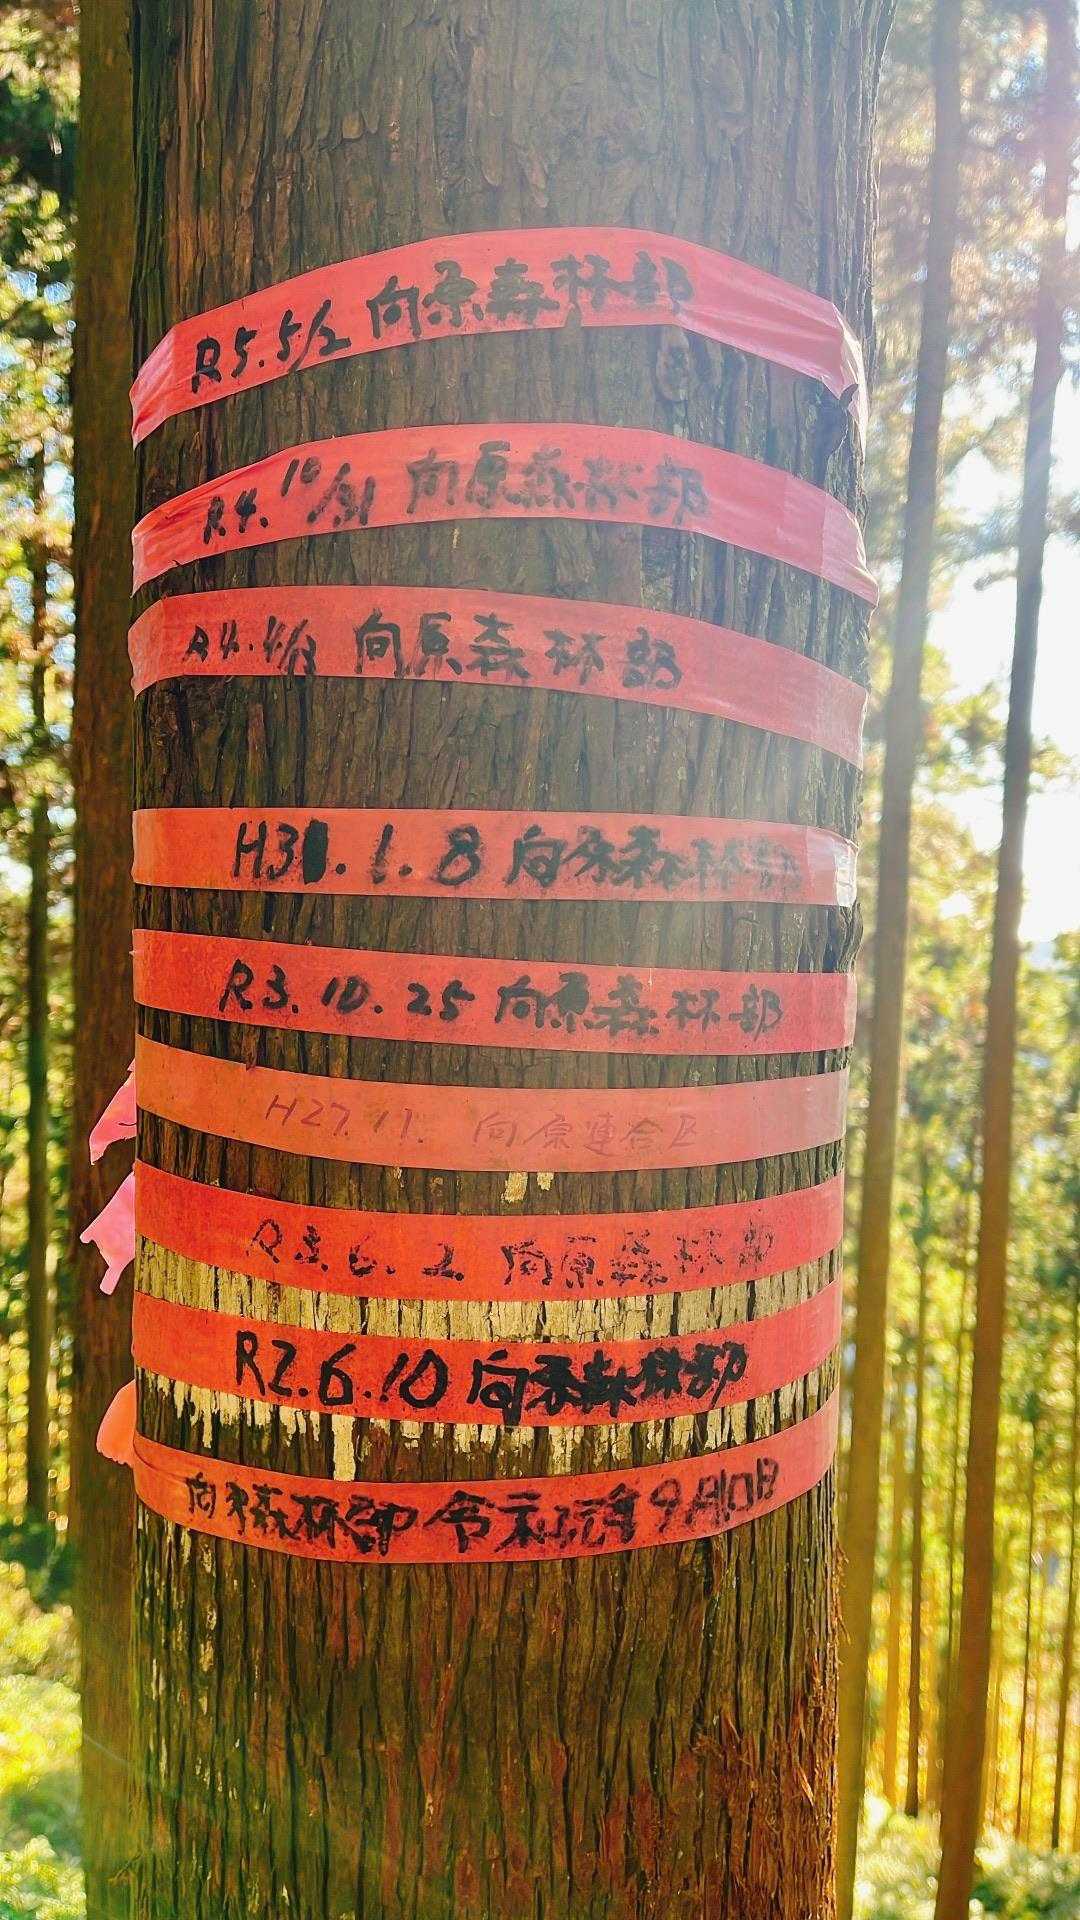 R5.5/2 向原森林部
R4.10/31 向原森林部
R4.4/13 向原森林部
H31.1.8 向原森林部
R3.10.25 向原森林部
H27.11. 向原連合区
R3.6.2 向原森林部
R2.6.10 向原森林部
向原森林部 令和元年9月10日